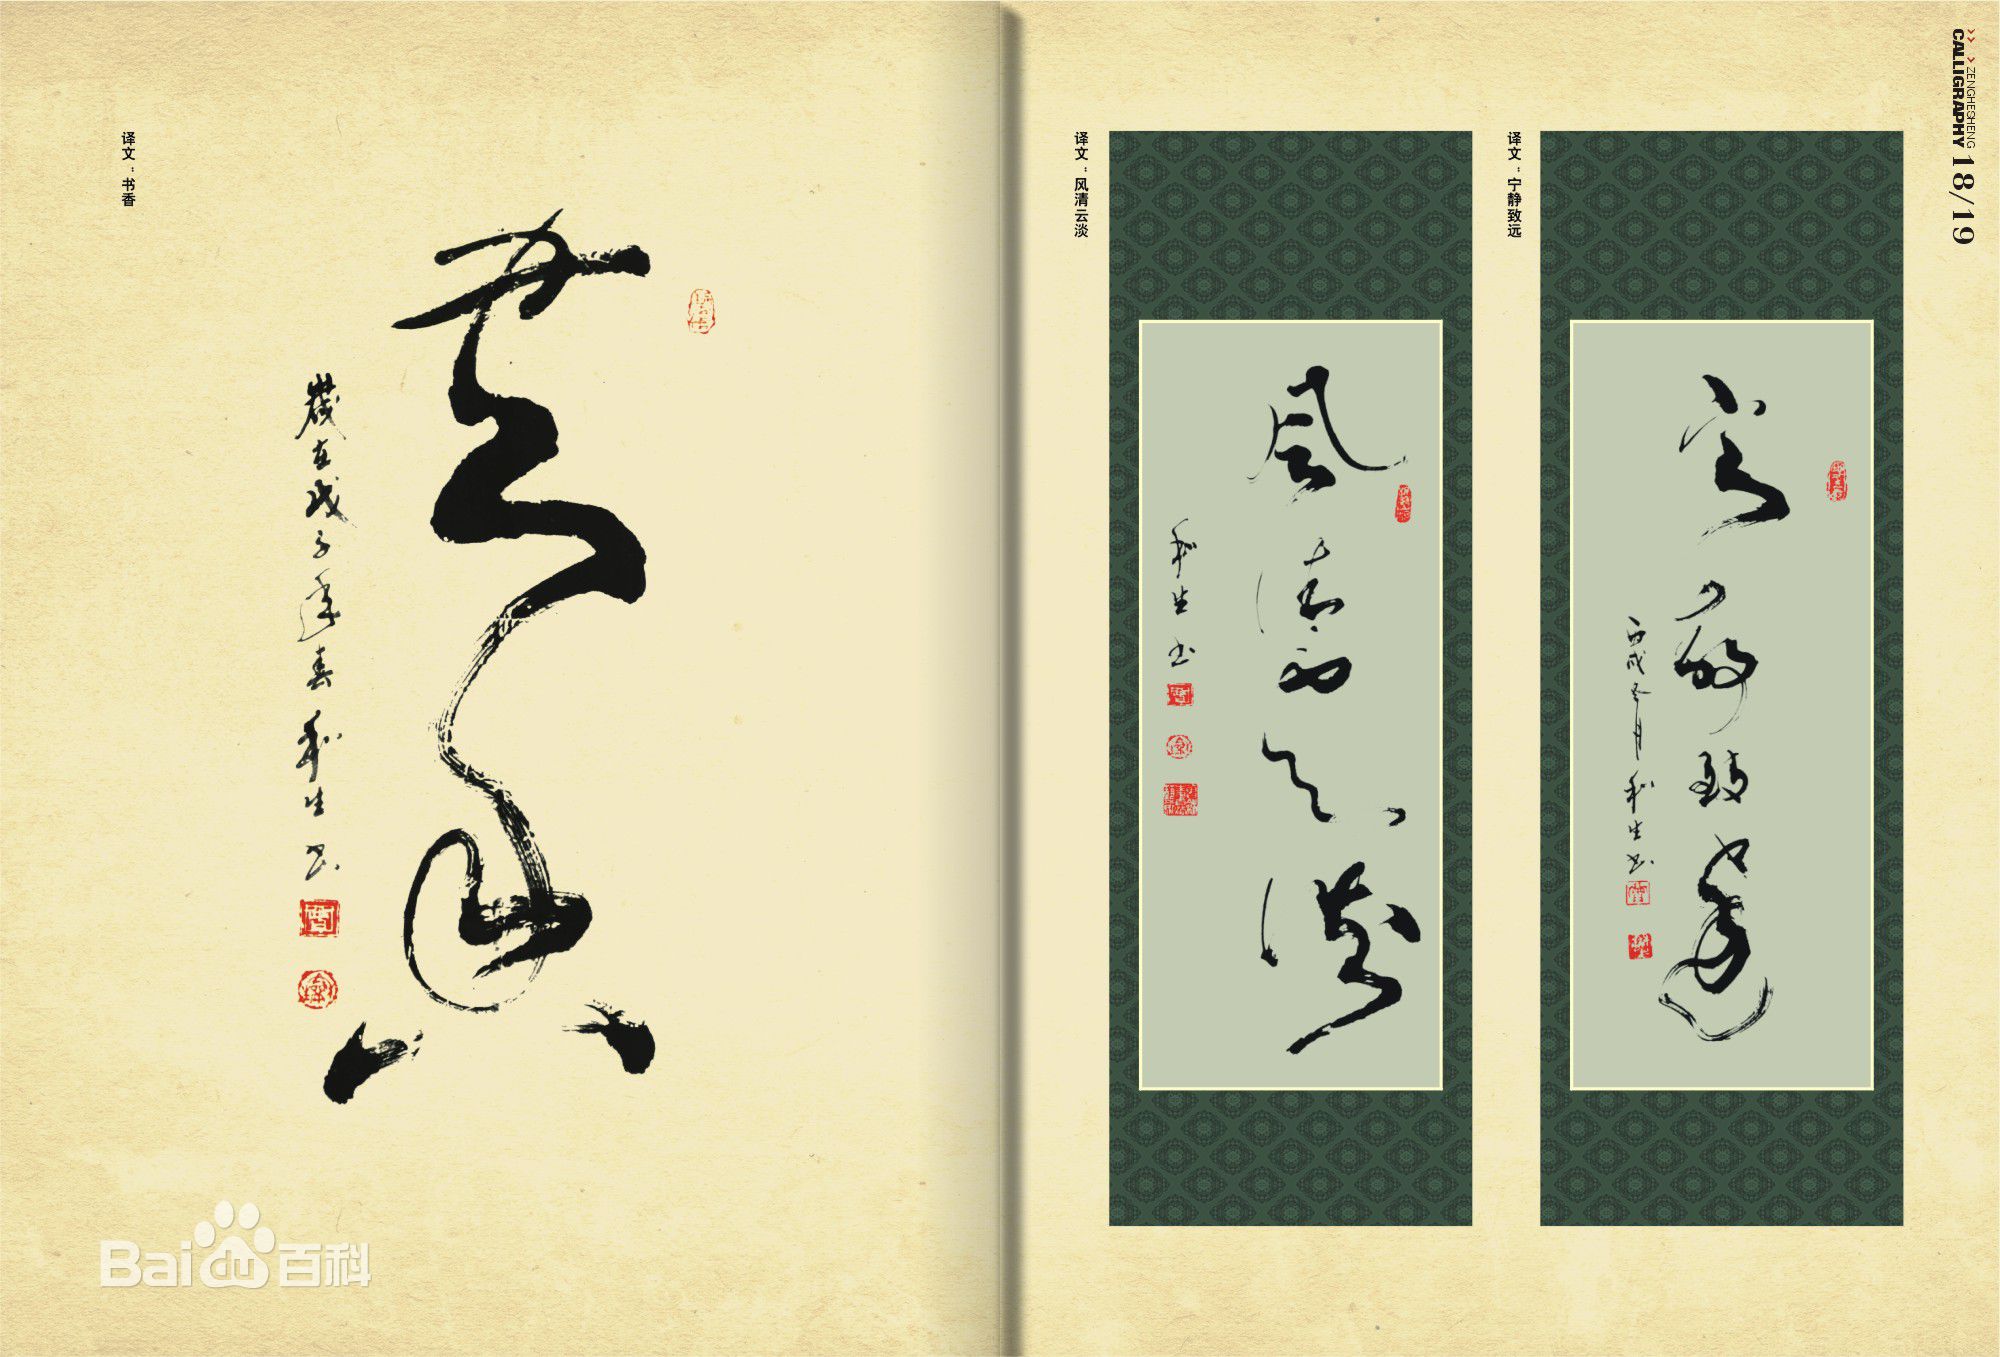 译文：书香
歲在戊子年春 和生书
译文：风清云淡
風清雲淡
和生书
译文：宁静致远
寧靜致遠
丙戌冬月和生书
ZENGHESHENG
CALLIGRAPHY 18/19
Bai du 百科